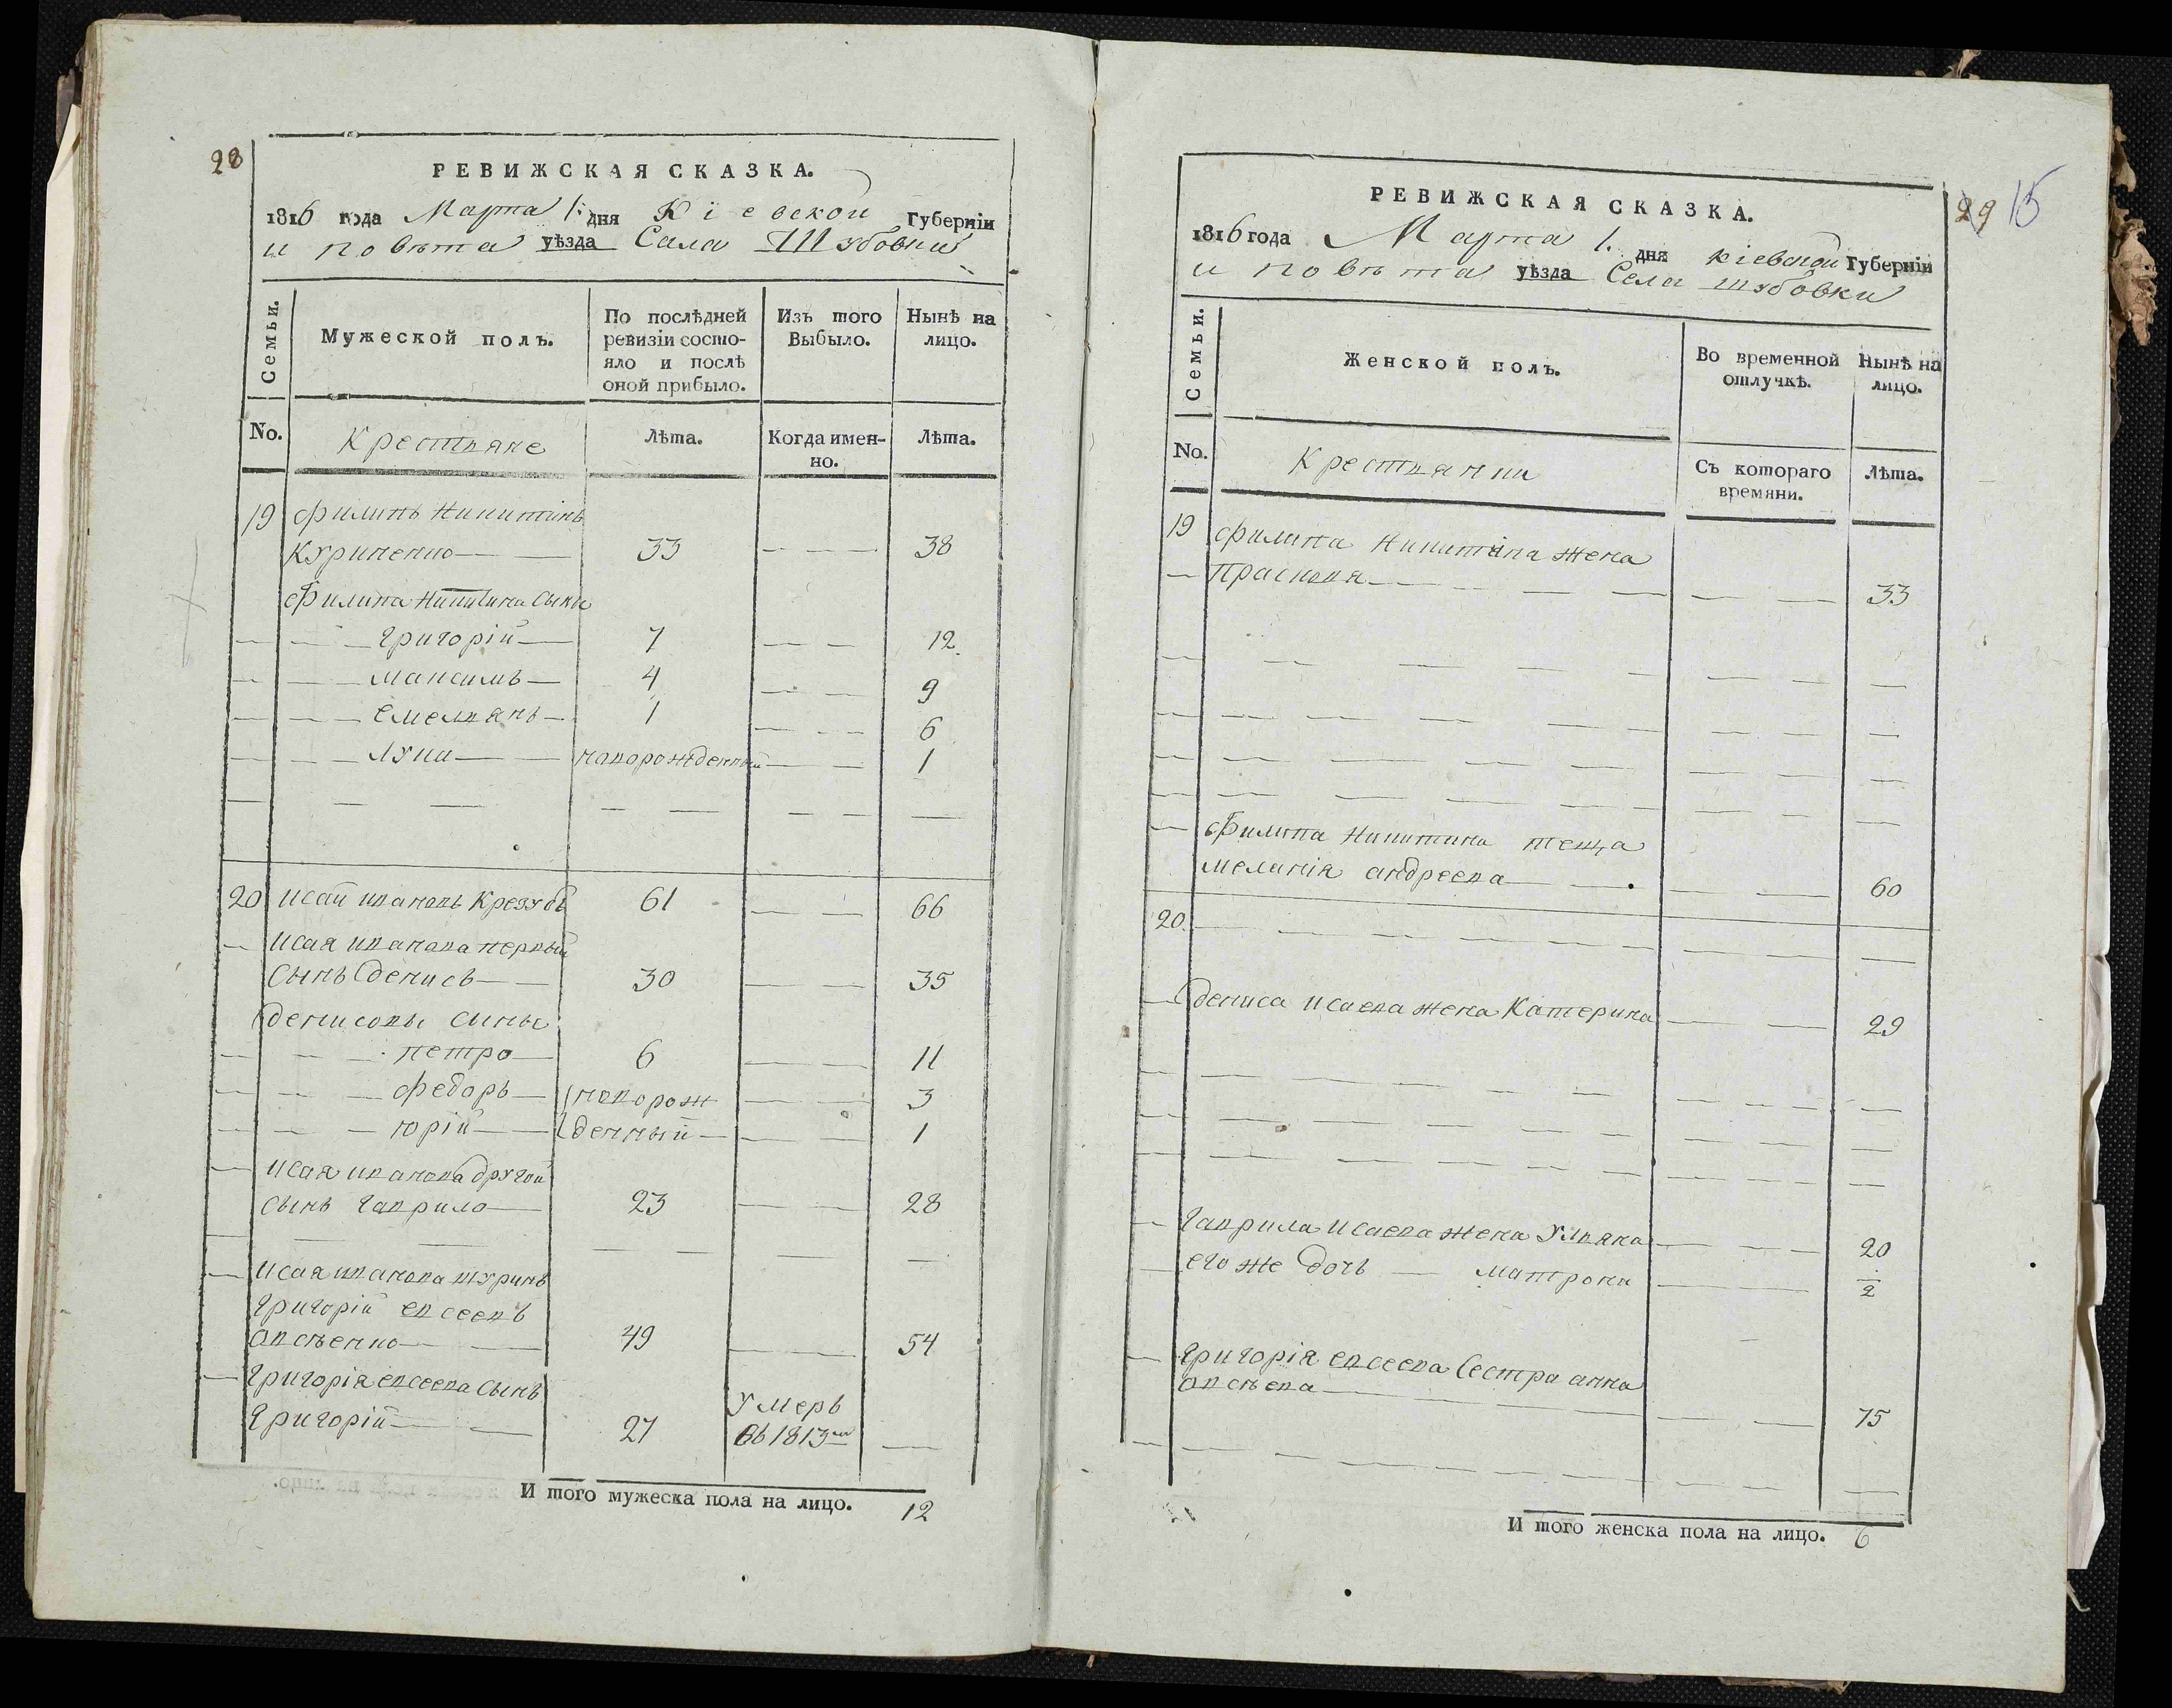 28
РЕВИЖСКАЯ СКАЗКА.
1816 года Марта 1. дня Кіевской Губерніи
и повѣта уѣзда Села Шубовки
Семьи.
Мужеской полъ.
По послѣдней ревизіи состояло и послѣ оной прибыло.
Изъ того Выбыло.
Нынѣ на лицо.
No.
Крестьяне
Лѣта.
Когда именно.
Лѣта.
19 Филипъ Никитинъ
Куриненко — — 33 — — — 38
Филипа Никитина сыны
— — — Григорій — 7 — — 12.
— — — Максимъ — 4 — — 9
— — — Емельянъ — 1 — — — 6
— — — Луки — — новорожденный — — 1
20 Исай Ивановъ Крезубъ 61 — — 66
— Исая Иванова первый
сынъ Денисъ — — 30 — — 35
Денисовы сыны
— — — петро — 6 — — 11
— — — Федоръ — новорож — — 3
— — — юрій — — денный — — — 1
— Исая Иванова другой
сынъ Гаврило — 23 — — 28
— Исая Иванова шуринъ
Григорій Евсеевъ
Овсѣенко — — 49 — — 54
— Григорія Евсеева сынъ
Григорій — — 27 умеръ въ 1813м —
И того мужеска пола на лицо. 12
29 15
РЕВИЖСКАЯ СКАЗКА.
1816 года Марта 1. дня кіевской Губерніи
и повѣта уѣзда Села шубовки
Семьи.
Женской полъ.
Во временной отлучкѣ.
Нынѣ на лицо.
No.
Крестьянки
Съ котораго времяни.
Лѣта.
19 Филипа Никитина жена
— Прасковя — — — — — — 33
— Филипа Никитина теща
Меланія андреева — — — — 60
20.
— Дениса Исаева жена Катерина — — 29
— Гаврила Исаева жена Ульяна — — — 20
— его же дочь — Матрона — — 2
— Григорія Евсеева Сестра анна
Овсѣева — — — — 75
И того женска пола на лицо. 6